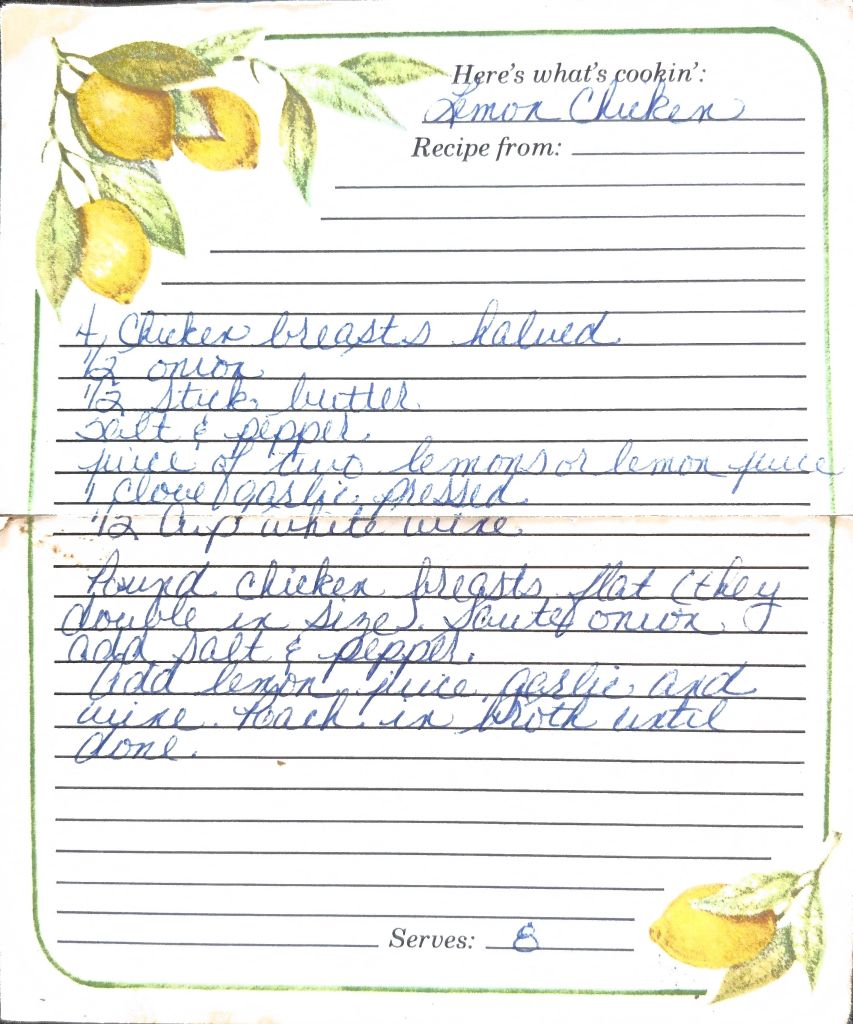 Here's what's cookin':
Lemon Chicken
Recipe from:
4 Chicken breasts halved
1/2 onion
1/2 stick butter.
salt & pepper.
juice of two lemons or lemon juice
1 clove garlic pressed
1/2 Cup white wine
Pound chicken breasts flat (they
double in size). Saute onion,
add salt & pepper.
Add lemon juice, garlic and
wine. Poach in broth until
done.
Serves: 8